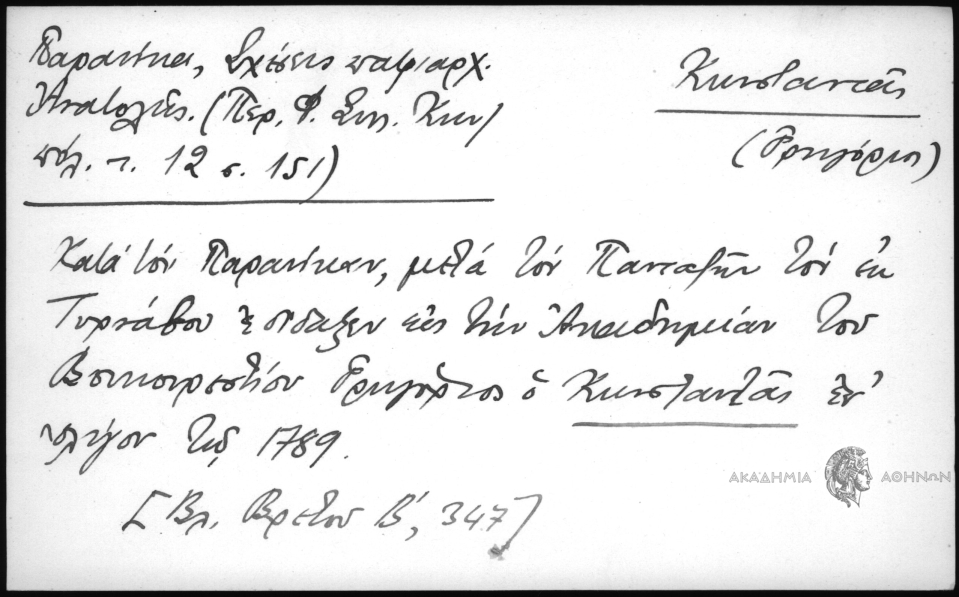 Παρανίκα, Σχέσεις πατριαρχ.
Ἀνατολῆς. (Περ. Φ. Συλ. Κων/
πόλ. τ. 12 σ. 151)
Κωνσταντᾶς
(Γρηγόριος)
Κατὰ τὸν Παρανίκαν, μετὰ τὸν Πανταζῆν τὸν ἐκ
Τυρνάβου ἐδίδαξεν εἰς τὴν Ἀκαδημίαν τοῦ
Βουκουρεστίου Γρηγόριος ὁ Κωνσταντᾶς ἐπ'
ὀλίγον τῷ 1789.
[Βλ. Βρετοῦ Β', 347]
ΑΚΑΔΗΜΙΑ ΑΘΗΝΩΝ